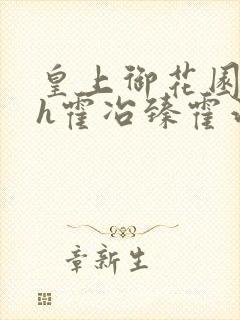 皇上御花园
h霍冶臻霍
章新生